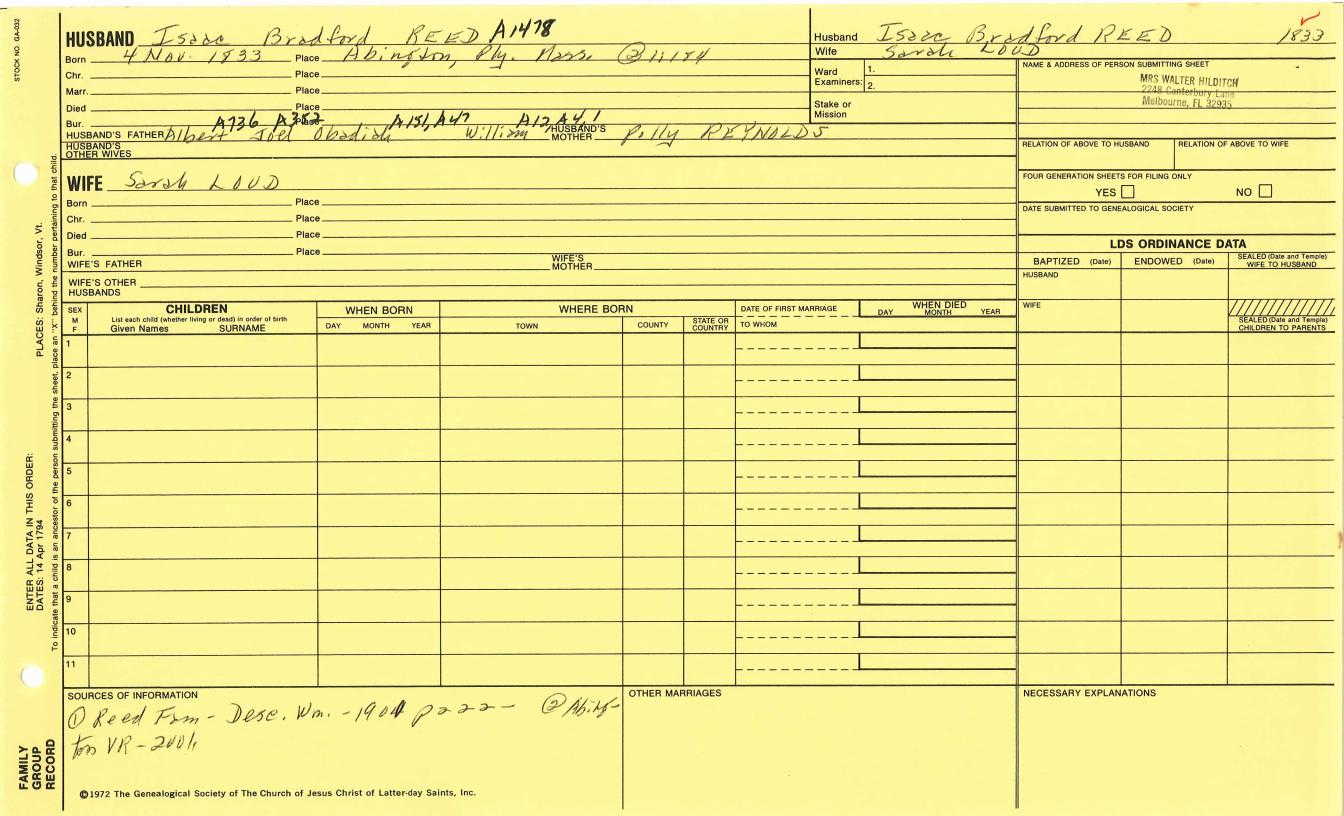 STOCK NO. GA-032
HUSBAND Isaac Bradford REED A1478
Born 4 Nov. 1833 Place Abington, Ply. Mass.
Chr. Place
Marr. Place
Died Place
Bur. Place
A736 A352 A151, A47 A12 A4.1
HUSBAND'S FATHER Albert Joel Obadiah William HUSBAND'S MOTHER Polly REYNOLDS
HUSBAND'S OTHER WIVES
WIFE Sarah LOUD
Born Place
Chr. Place
Died Place
Bur. Place
WIFE'S FATHER WIFE'S MOTHER
WIFE'S OTHER HUSBANDS
Husband Isaac Bradford REED 1833
Wife Sarah LOUD
Ward Examiners: 1.
2.
Stake or Mission
NAME & ADDRESS OF PERSON SUBMITTING SHEET
MRS WALTER HILDITCH
2248 Canterbury Lane
Melbourne, FL 32935
RELATION OF ABOVE TO HUSBAND RELATION OF ABOVE TO WIFE
FOUR GENERATION SHEETS FOR FILING ONLY
YES NO
DATE SUBMITTED TO GENEALOGICAL SOCIETY
LDS ORDINANCE DATA
BAPTIZED (Date) ENDOWED (Date) SEALED (Date and Temple) WIFE TO HUSBAND
HUSBAND
WIFE
SEALED (Date and Temple) CHILDREN TO PARENTS
SEX M F. CHILDREN WHEN BORN WHERE BORN DATE OF FIRST MARRIAGE WHEN DIED
List each child (whether living or dead) in order of birth
Given Names SURNAME DAY MONTH YEAR TOWN COUNTY STATE OR COUNTRY TO WHOM DAY MONTH YEAR
1
2
3
4
5
6
7
8
9
10
11
SOURCES OF INFORMATION
① Reed Fam - Desc. Wm. - 1901 p222 - ② Abing-
ton VR -
OTHER MARRIAGES
NECESSARY EXPLANATIONS
©1972 The Genealogical Society of The Church of Jesus Christ of Latter-day Saints, Inc.
FAMILY GROUP RECORD
ENTER ALL DATA IN THIS ORDER:
DATES: 14 Apr 1794
PLACES: Sharon, Windsor, Vt.
To indicate that a child is an ancestor of the person submitting the sheet, place an "X" behind the number pertaining to that child.